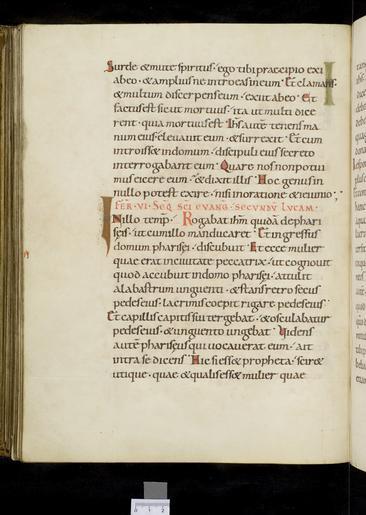 Surde & mute spiritus · ego tibi praecipio exi
ab eo · & amplius ne introeas in eum · Et clamans
& multum discerpens eum · exiit ab eo · Et
factus est sicut mortuus · ita ut multi dice
rent · quia mortuus est · Ihs autē tenens ma
num eius eleuauit eum · & surrexit · Et cum
introiss& in domum · discipuli eius secreto
interrogabant eum · Quare nos non potui
mus eicere eum · & dixit illis · Hoc genus in
nullo potest exire · nisi in oratione & ieiunio ;
FER · VI · SEQ SCI EVANG · SECVNDV LVCAM ·
In illo temp · Rogabat ihm quidā de phari
seis · ut cum illo manducaret · Et ingressus
domum pharisei · discubuit · Et ecce mulier
quae erat in ciuitate peccatrix · ut cognouit
quod accubuit in domo pharisei · attulit
alabastrum unguenti · & stans retro secus
pedes eius · lacrimis coepit rigare pedes eius
Et capillis capitis sui tergebat · & osculabatur
pedes eius · & unguento ungebat · Videns
autē phariseus qui uocauerat eum · ait
intra se dicens · Hic si ess& propheta · scir&
utique · quae & qualis ess& mulier quae